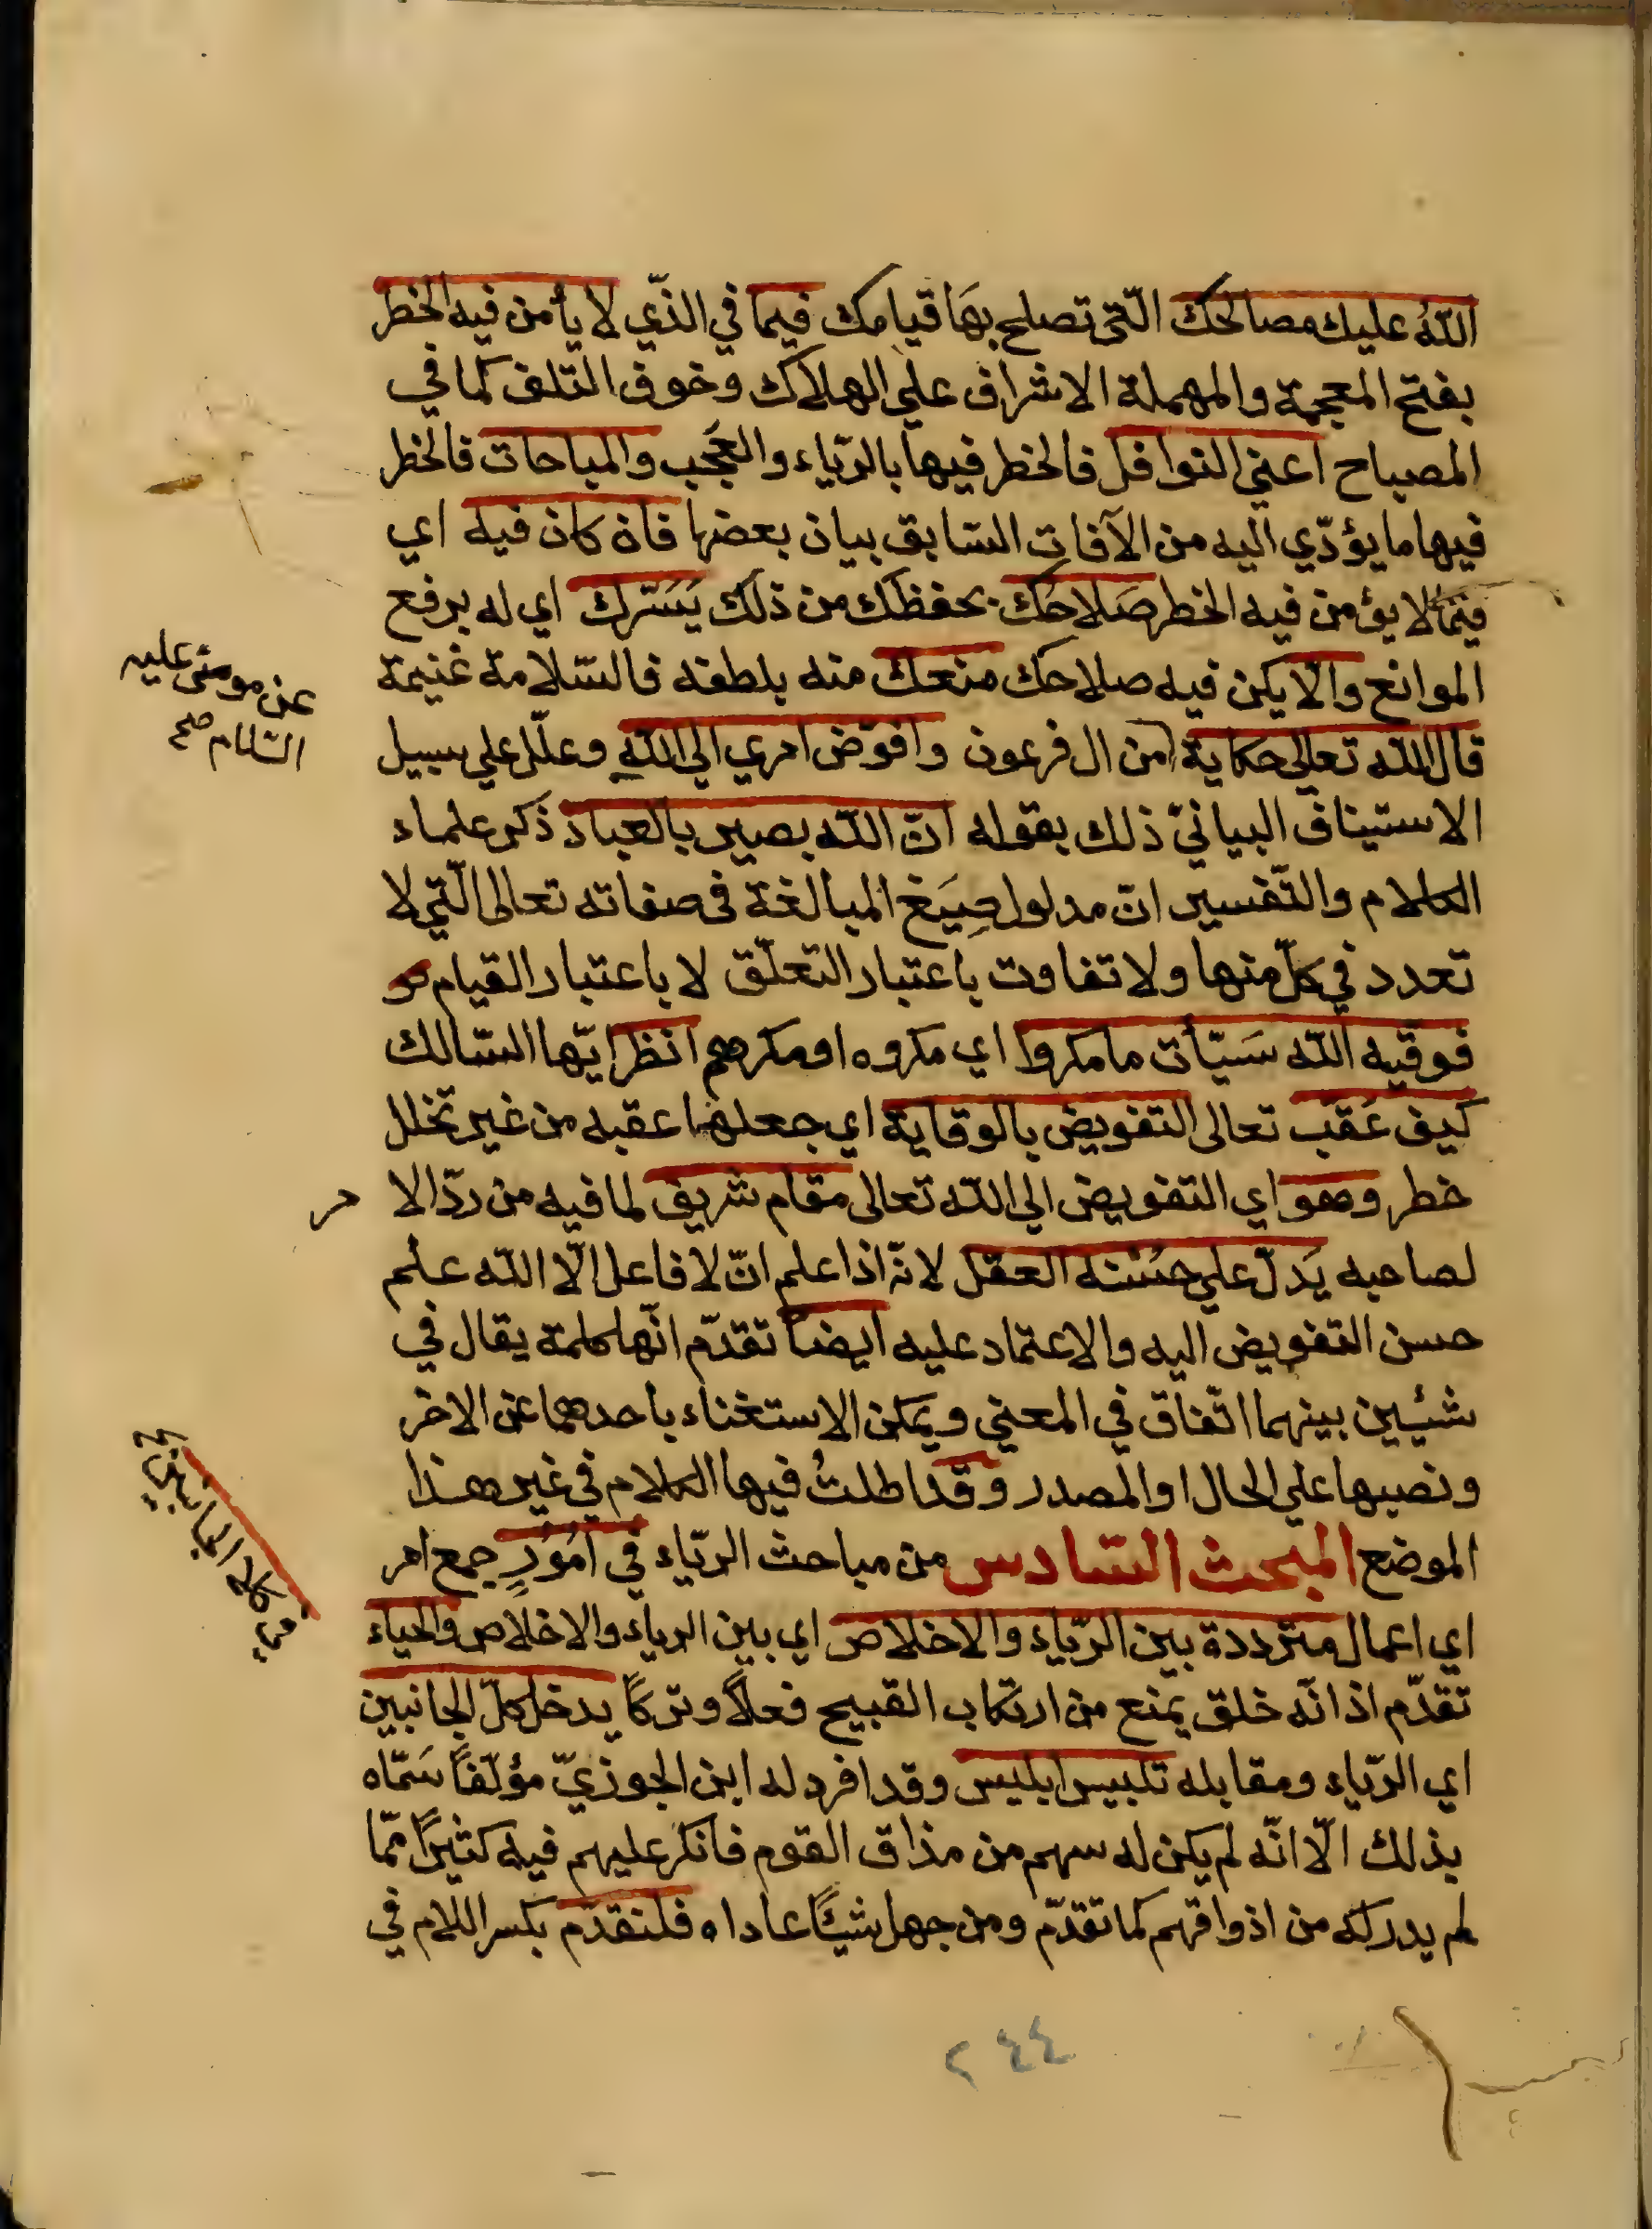 الله عليك مصالحك الّتى تصلح بهَا قيامك فيما في الذّي لا يأمن فيه الخطر
بفتح المعجمة والمهملة الاشراف علي الهلاك وخوف التلف كما في
المصباح اعني النوافل فالخطر فيها بالرّياء والعُجب والمباحات فالخطر
فيها ما يؤدّي اليه من الآفات السّابق بيان بعضها فان كان فيه اي
فيما لا يؤمن فيه الخطر صَلاحك بحفظك من ذلك يَسّرك اي له برفع
الموانع والّا يكن فيه صلاحك منعك منه بلطفه فالسّلامة غنيمة
قال الله تعالى حكاية من ال فرعون وافوّض امري الي الله وعلّل علي سبيل
عن مومنى عليه
السّلام صح
الاستيناف البيانيّ ذلك بقوله انّ الله بصير بالعباد ذكر علماء
الكلام والتّفسير انّ مدلول صِيَغ المبالغة فى صفاته تعالى الّتي لا
تعدد في كلّ منها ولا تفاوت باعتبار التعلّق لا باعتبار القيام هو
فوقيه الله سَيّأت ما مكروا اي مكروه او مكرهم انظر ايّها السّالك
كيف عَقّب تعالى التفويض بالوقاية اي جعلها عقبه من غير تخلل
خطر وهو اي التفويض الي الله تعالى مقام شريف لما فيه من ردّ الا
مر
لصاحبه يَدلّ علي حسنه العقل لانّه اذا علم انّ لا فاعل الّا الله علم
حسن التفويض اليه والاعتماد عليه ايضاً تقدّم انّها كلمة يقال في
شيئين بينهما اتّفاق في المعني ويمكن الاستغناء باحدهما عن الاخر
ونصبها علي الحال او المصدر وقد اطلتُ فيها الكلام في غير هذا
الموضع المبحث السّادس من مباحث الرّياء في امُورٍ جمع امر
اي اعمال مترددة بين الرّياء والاخلاص اي بين الرياء والاخلاص والحياء
تقدّم اذ انّه خلق يمنع من ارتكاب القبيح فعلاً وتركاً يدخل كلّ الجانبين
اي الرّياء ومقابله تلبيس ابليس وقد افرد له ابن الجوزيّ مؤلّفاً سَمّاه
بذلك الّا انّه لم يكن له سهم من مذاق القوم فانكر عليهم فيه كثيرًا ممّا
لم يدركه من اذواقهم كما تقدّم ومن جهل شيئًا عاداه فلنقدّم بكسر اللام في
٢٤٤